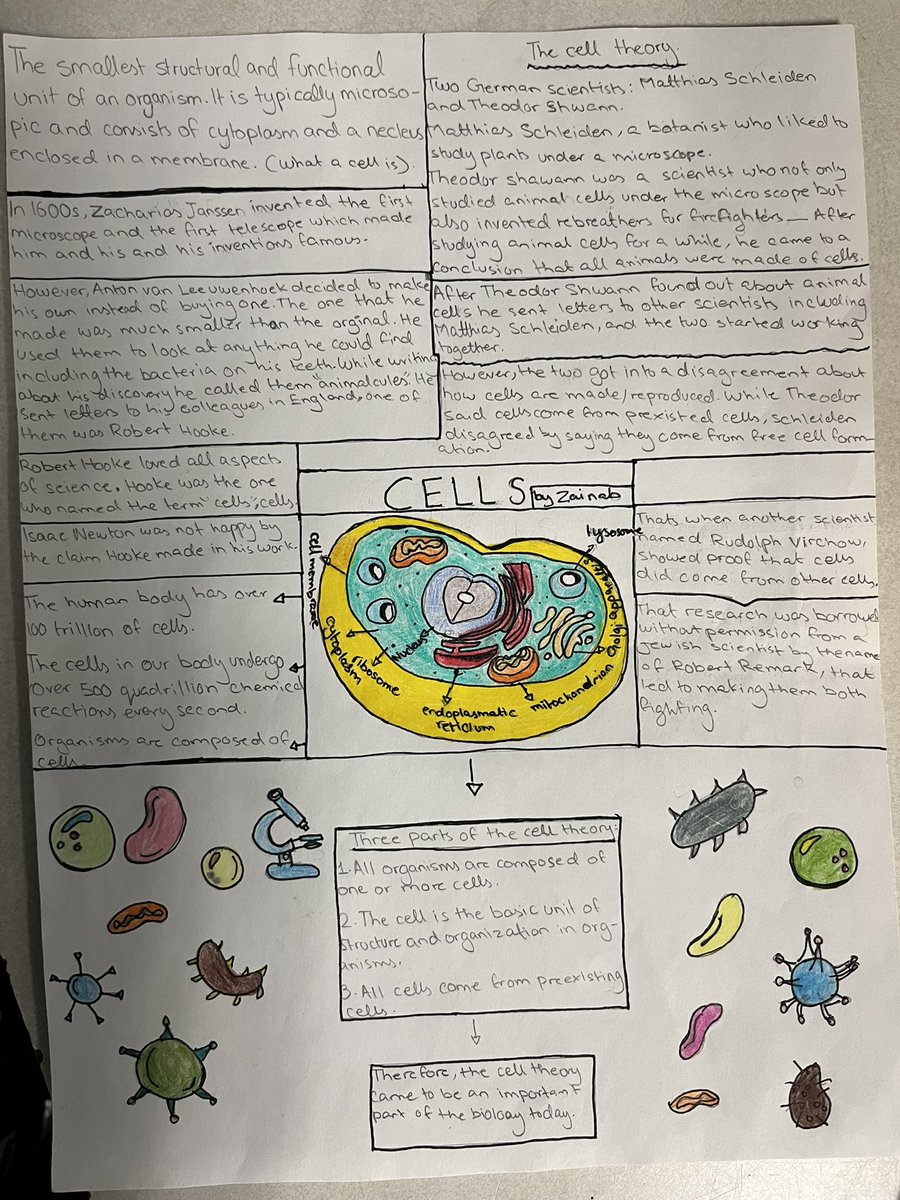 The smallest structural and functional
unit of an organism. It is typically microso-
pic and consists of cytoplasm and a necleus
enclosed in a membrane. (What a cell is).
In 1600s, Zacharias Janssen invented the first
microscope and the first telescope which made
him and his and his inventions famous.
However, Anton van Leeuwenhoek decided to make
his own instead of buying one. The one that he
made was much smaller than the orginal. He
used them to look at anything he could find
including the bacteria on his teeth. While writing
about his discovery he called them "animalcules". He
sent letters to his colleagues in England, one of
them was Robert Hooke.
Robert Hooke loved all aspects
of science, Hooke was the one
who named the term "cells", cells
Isaac Newton was not happy by
the claim Hooke made in his work.
The human body has over
100 trillion of cells.
The cells in our body undergo
over 500 quadrillion chemical
reactions every second.
Organisms are composed of
cells.
The cell theory.
Two German scientists: Matthias Schleiden
and Theodor Shwann.
Matthias Schleiden, a botanist who liked to
study plants under a microscope.
Theodor Shawann was a scientist who not only
studied animal cells under the microscope but
also invented rebreathers for firefighters. After
studying animal cells for a while, he came to a
conclusion that all animals were made of cells.
After Theodor Shwann found out about animal
cells he sent letters to other scientists including
Matthias Schleiden, and the two started working
together.
However, the two got into a disagreement about
how cells are made/reproduced. While Theodor
said cells come from prexisted cells, schleiden
disagreed by saying they come from free cell form-
ation.
Thats when another scientist
named Rudolph Virchow,
showed proof that cells
did come from other cells.
That research was borrowed
without permission from a
jewish scientist by the name
of Robert Remark, that
led to making them both
fighting.
CELLS by Zainab
cell membrane
cytoplasm
ribosome
nucleus
endoplasmatic
reticlum
mitochondrian
Golgi apparatus
lysosome
Three parts of the cell theory:
1. All organisms are composed of
one or more cells.
2. The cell is the basic unit of
structure and organization in org-
anisms.
3. All cells come from preexisting
cells.
Therefore, the cell theory
came to be an important
part of the biology today.